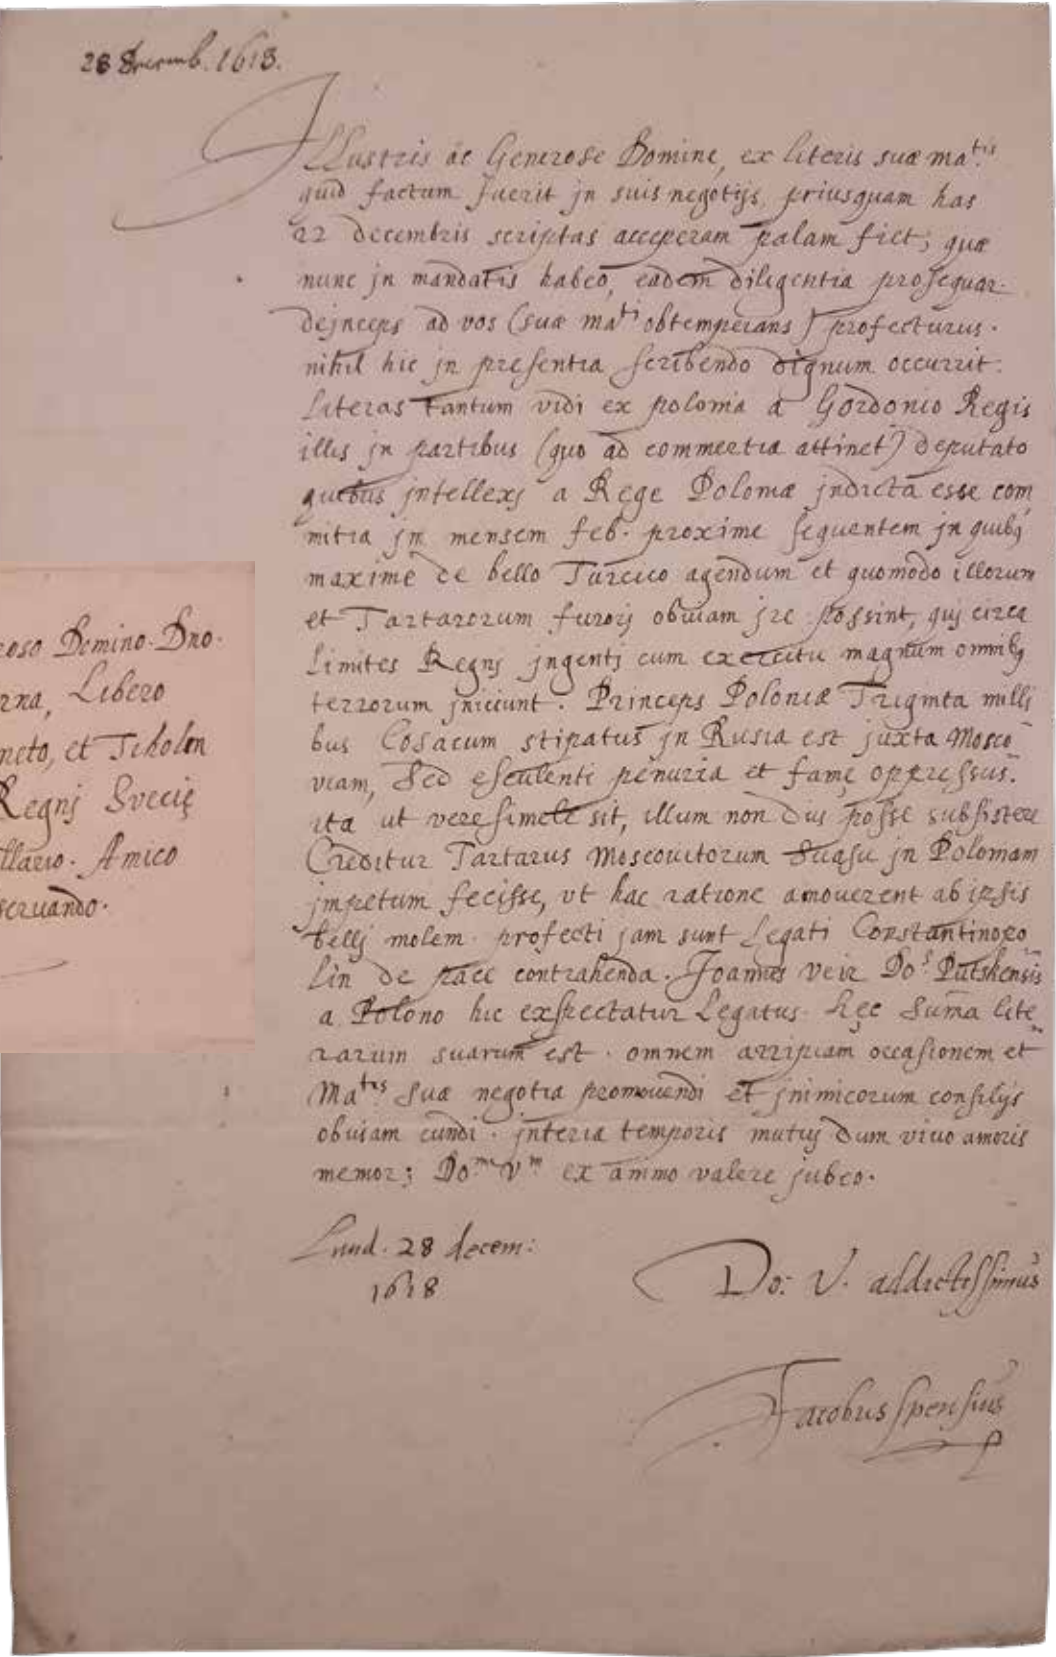 28 Decemb. 1618.
Illustris ac Generose Domine, ex literis suæ ma.tis
quid factum fuerit jn suis negotijs, priusquam has
22 decembris scriptas acceperam palam fiet; quæ
nunc jn mandatis habeo, eadem diligentia prosequar.
dejnceps ad vos (suæ ma.ti obtemperans) profecturus.
nihil hic jn presentia scribendo dignum occurrit.
Literas tantum vidi ex polonia a Gordonio Regis
illis jn partibus (quo ad commertia attinet) deputato
quibus jntellexj a Rege Poloniæ jndicta esse com
mitia jn mensem feb. proxime sequentem jn quibq
maxime de bello Turcico agendum et quomodo illorum
et Tartarorum furorj obuiam jre possint, quj circa
limites Regnj jngentj cum exercitu magnum omnibq
terrorum jniciunt. Princeps Poloniæ Triginta milli
bus Cosacum stipatus jn Rusia est juxta Mosco
viam, Sed esculenti penuria et famę oppressus.
ita ut veresimele sit, illum non dius posse subsistere
Creditur Tartarus Moscouitorum Suasu jn Poloniam
jmpetum fecisse, vt hac ratione amouerent ab ipsis
bellj molem. profecti jam sunt Legati Constantinopo
lin de pace contrahenda. Joannes veir Do.s Putskensis
a Polono hic exspectatur Legatus. hęc Suma lite
rarum suarum est. omnem arripiam occasionem et
Ma.tis Suæ negotia promouendi et jnimicorum consilijs
obuiam eundi. jnteria temporis mutuj dum viuo amoris
memor; Do.ne Vm ex animo valere jubeo.
Lund. 28 decem:
1618
Do: V. addictissimus
Jacobus Spensius
roso Domino. Dno.
rna, Libero
neto, et Tiholm
Regnj Svecię
llario. Amico
seruando.